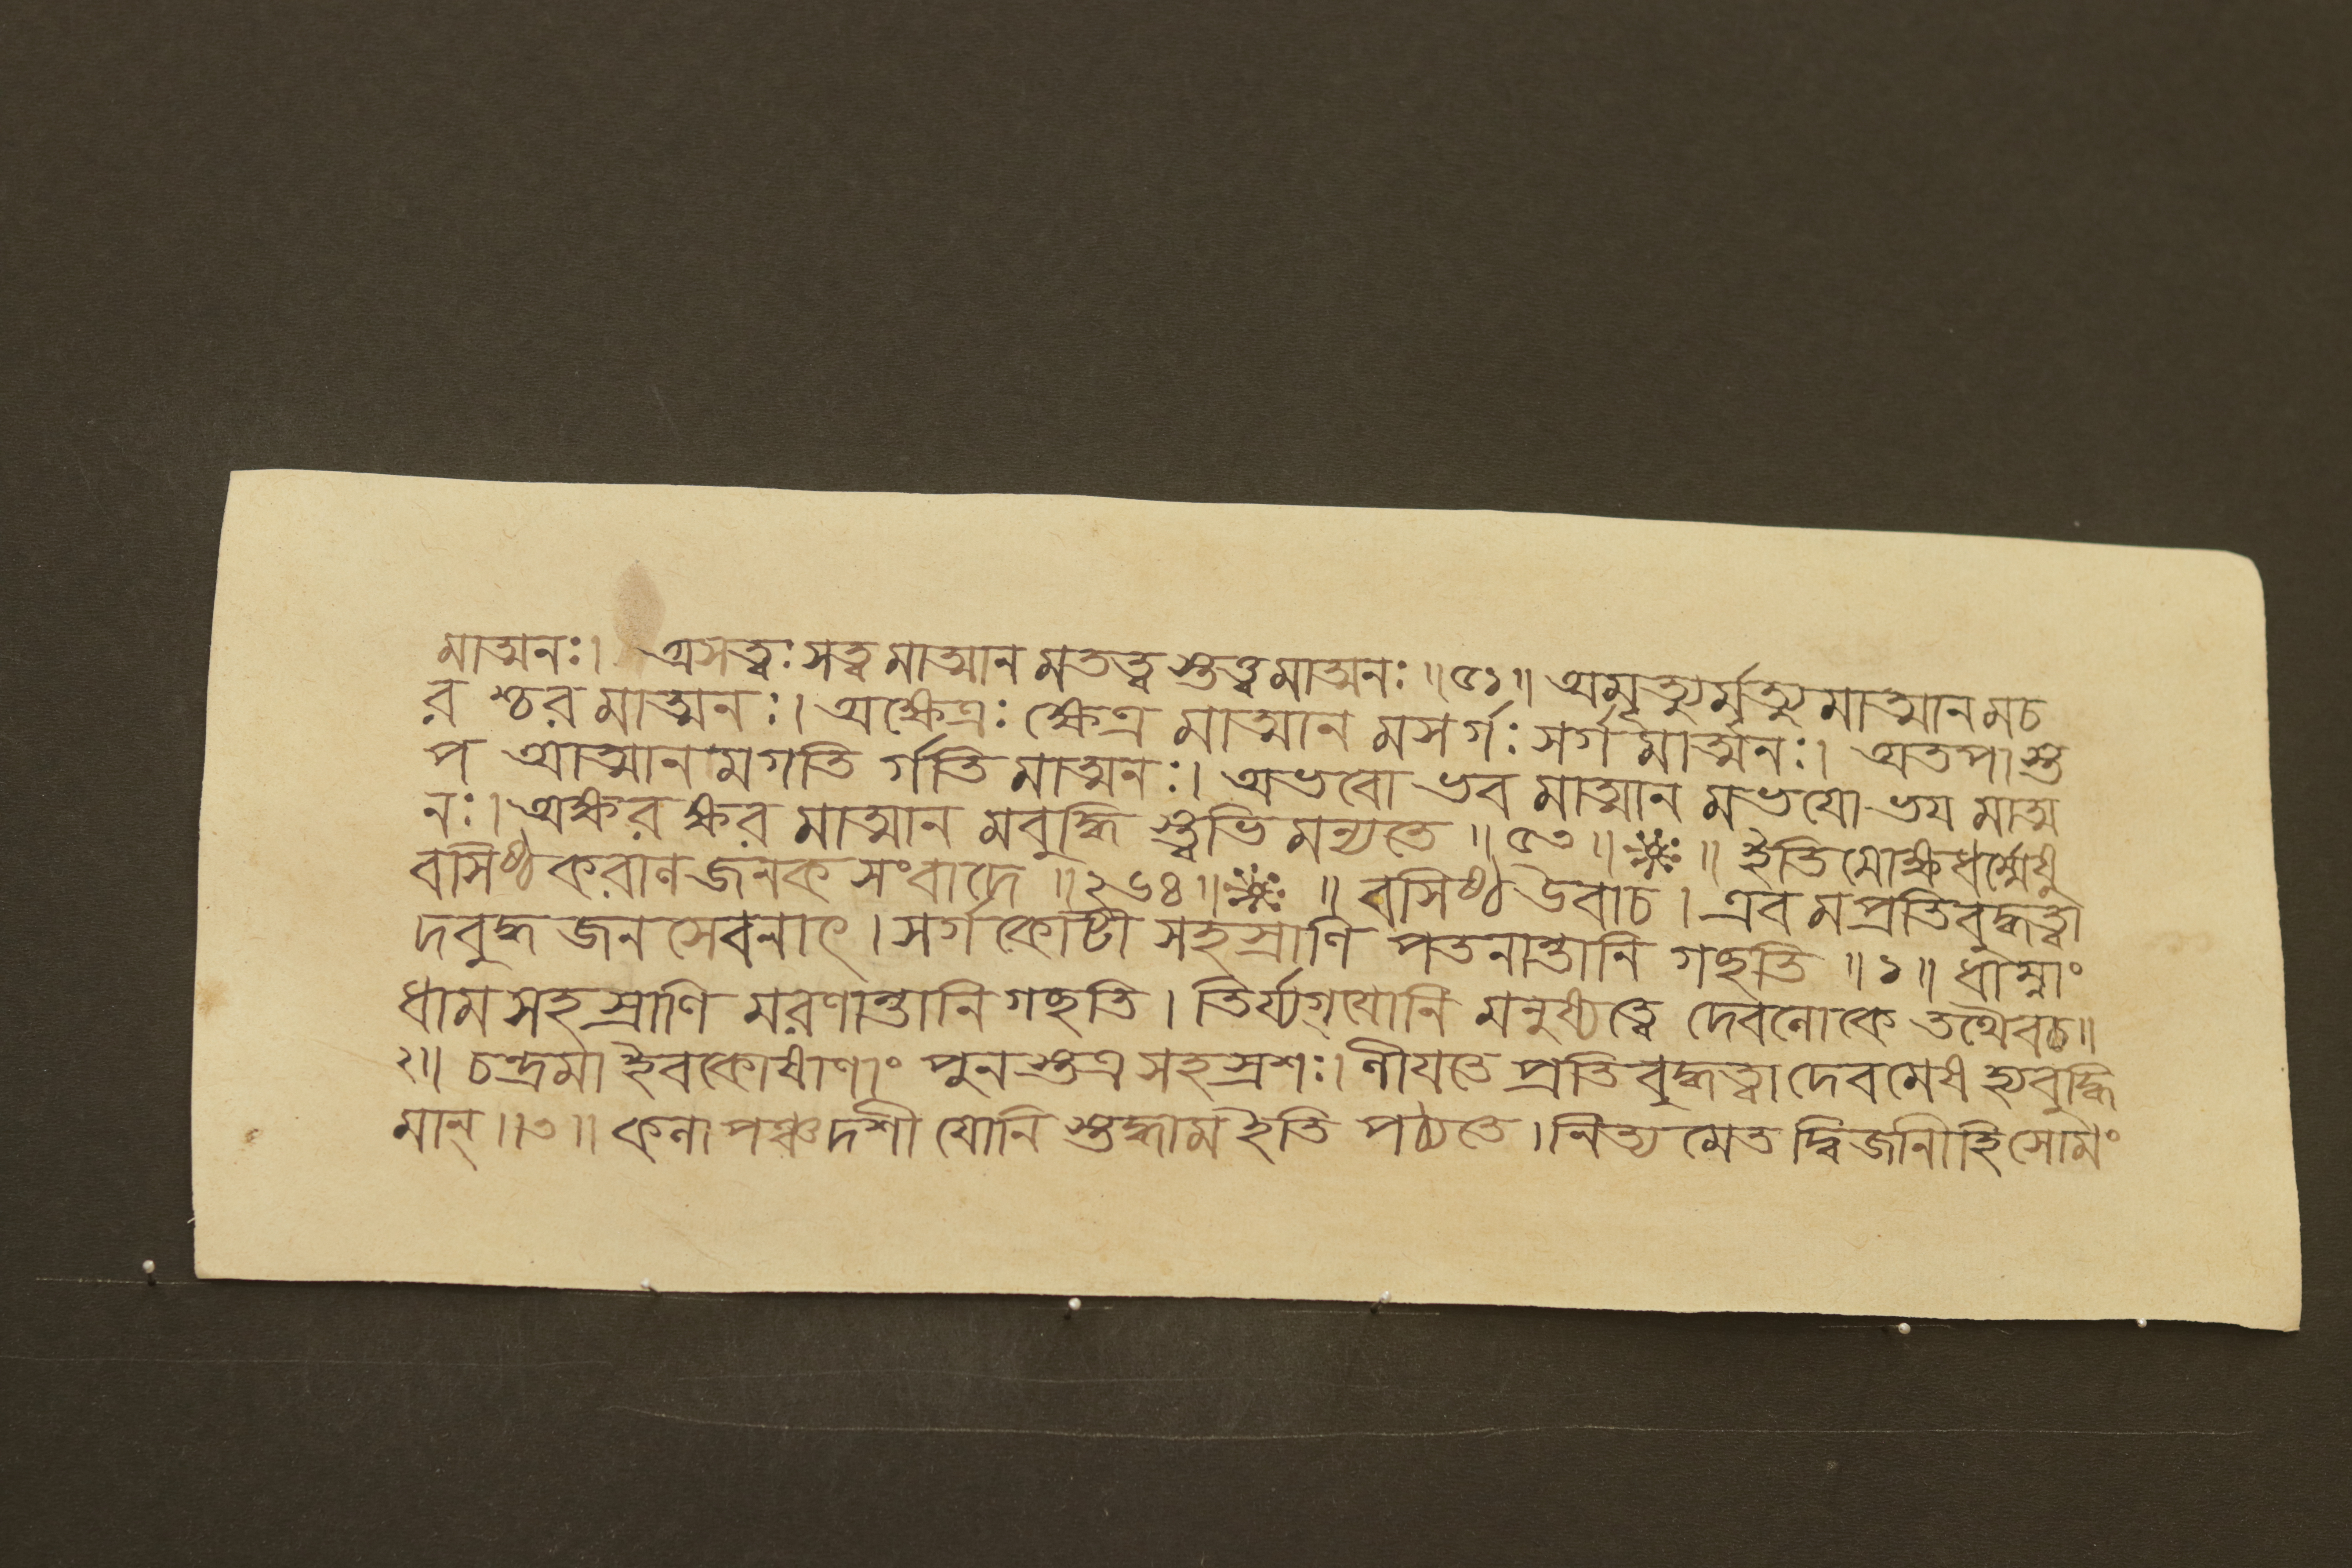 মাত্মনঃ। অসত্ত্বঃ সত্ত্বমাত্মান মতত্ত্ব স্তত্ত্বমাত্মনঃ ॥৫১॥ অমৃত্যুর্মৃত্যুমাত্মানমচ
র শ্চরমাত্মনঃ। অক্ষেত্রঃ ক্ষেত্র মাত্মান মসর্গঃ সর্গমাত্মনঃ। অতপা স্ত
প আত্মানমগতি র্গতি মাত্মনঃ। অভবো ভব মাত্মান মভয়ো ভয় মাত্ম
নঃ। অক্ষর ক্ষর মাত্মান মবুদ্ধি স্ত্বভি মন্যতে ॥৫৩॥ ॥ ইতি মোক্ষধর্ম্মেষু
বসিষ্ঠ করাল জনক সংবাদে ॥২৬৪॥ ॥ বসিষ্ঠ উবাচ। এব মপ্রতিবুদ্ধত্বা
দবুদ্ধ জন সেবনাৎ। সর্গ কোটী সহস্রাণি পতনান্তানি গচ্ছতি ॥১॥ ধাম্নাং
ধাম সহস্রাণি মরণান্তানি গচ্ছতি। তির্য্যগ্যোনি মনুষ্যত্বে দেবলোকে তথৈবচ॥
২॥ চন্দ্রমা ইব কোষাণাং পুন স্তত্র সহস্রশঃ। লীয়তে প্রতিবুদ্ধত্বা দেবমেষ হ্যবুদ্ধি
মান্॥৩॥ কলা পঞ্চদশী যোনি স্তদ্ধাম ইতি পঠ্যতে। নিত্য মেত দ্বিজানীহি সোমং